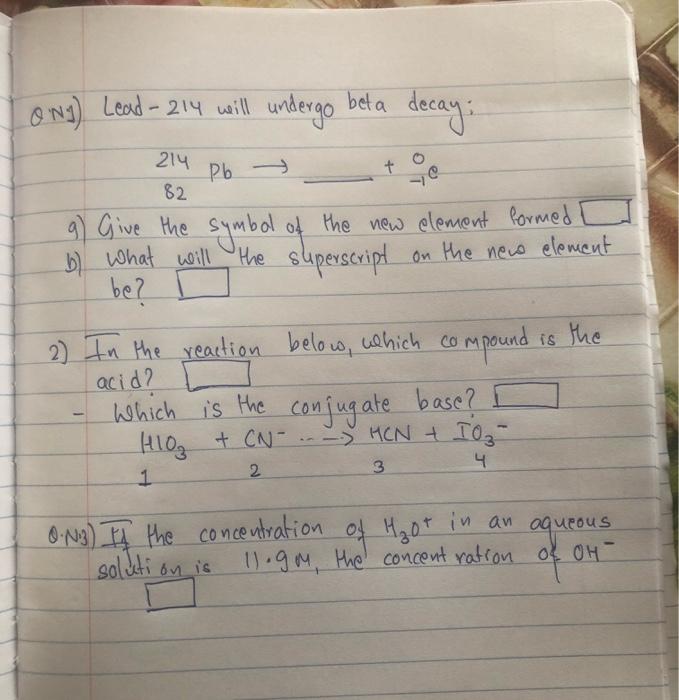 Q N1) Lead - 214 will undergo beta decay:
214
82 Pb → ____ + 0
-1 e
a) Give the symbol of the new element formed
b) What will the superscript on the new element
be?
2) In the reaction below, which compound is the
acid?
- Which is the conjugate base?
HIO3 + CN- ---> HCN + IO3-
1 2 3 4
Q.N3) If the concentration of H3O+ in an aqueous
solution is 11.9 M, the concentration of OH-